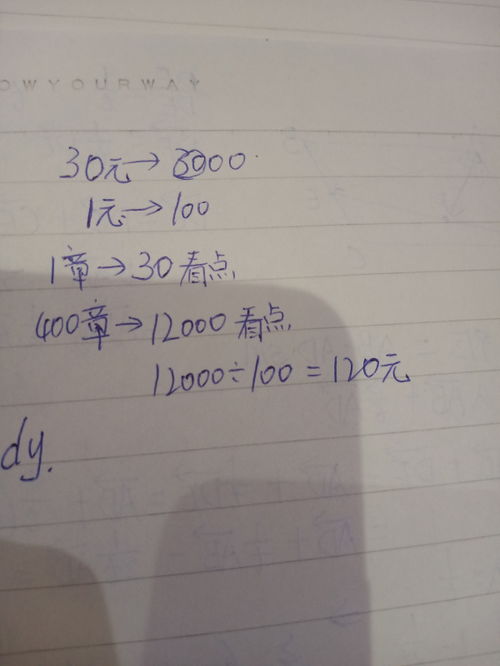 OWYOURWAY
30元→3000
1元→100
1章→30看点
400章→12000看点
12000÷100=120元
dy.